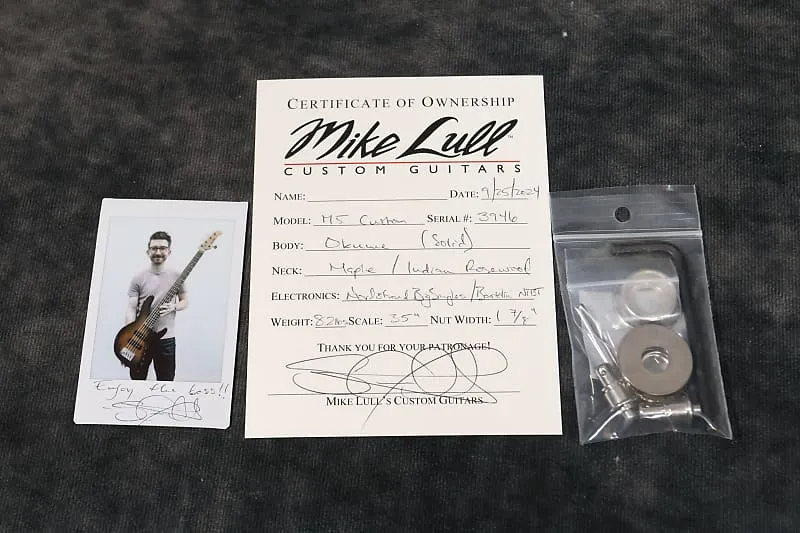 CERTIFICATE OF OWNERSHIP
Mike Lull™
CUSTOM GUITARS
NAME: DATE: 9/25/2024
MODEL: M5 Custom SERIAL #: 3946
BODY: Okume (Solid)
NECK: Maple / Indian Rosewood
ELECTRONICS: Nordstrand Big Singles / Bartolini NTBT
WEIGHT: 8.2lbs SCALE: 35" NUT WIDTH: 1 7/8"
THANK YOU FOR YOUR PATRONAGE!
MIKE LULL'S CUSTOM GUITARS
Enjoy the bass!!